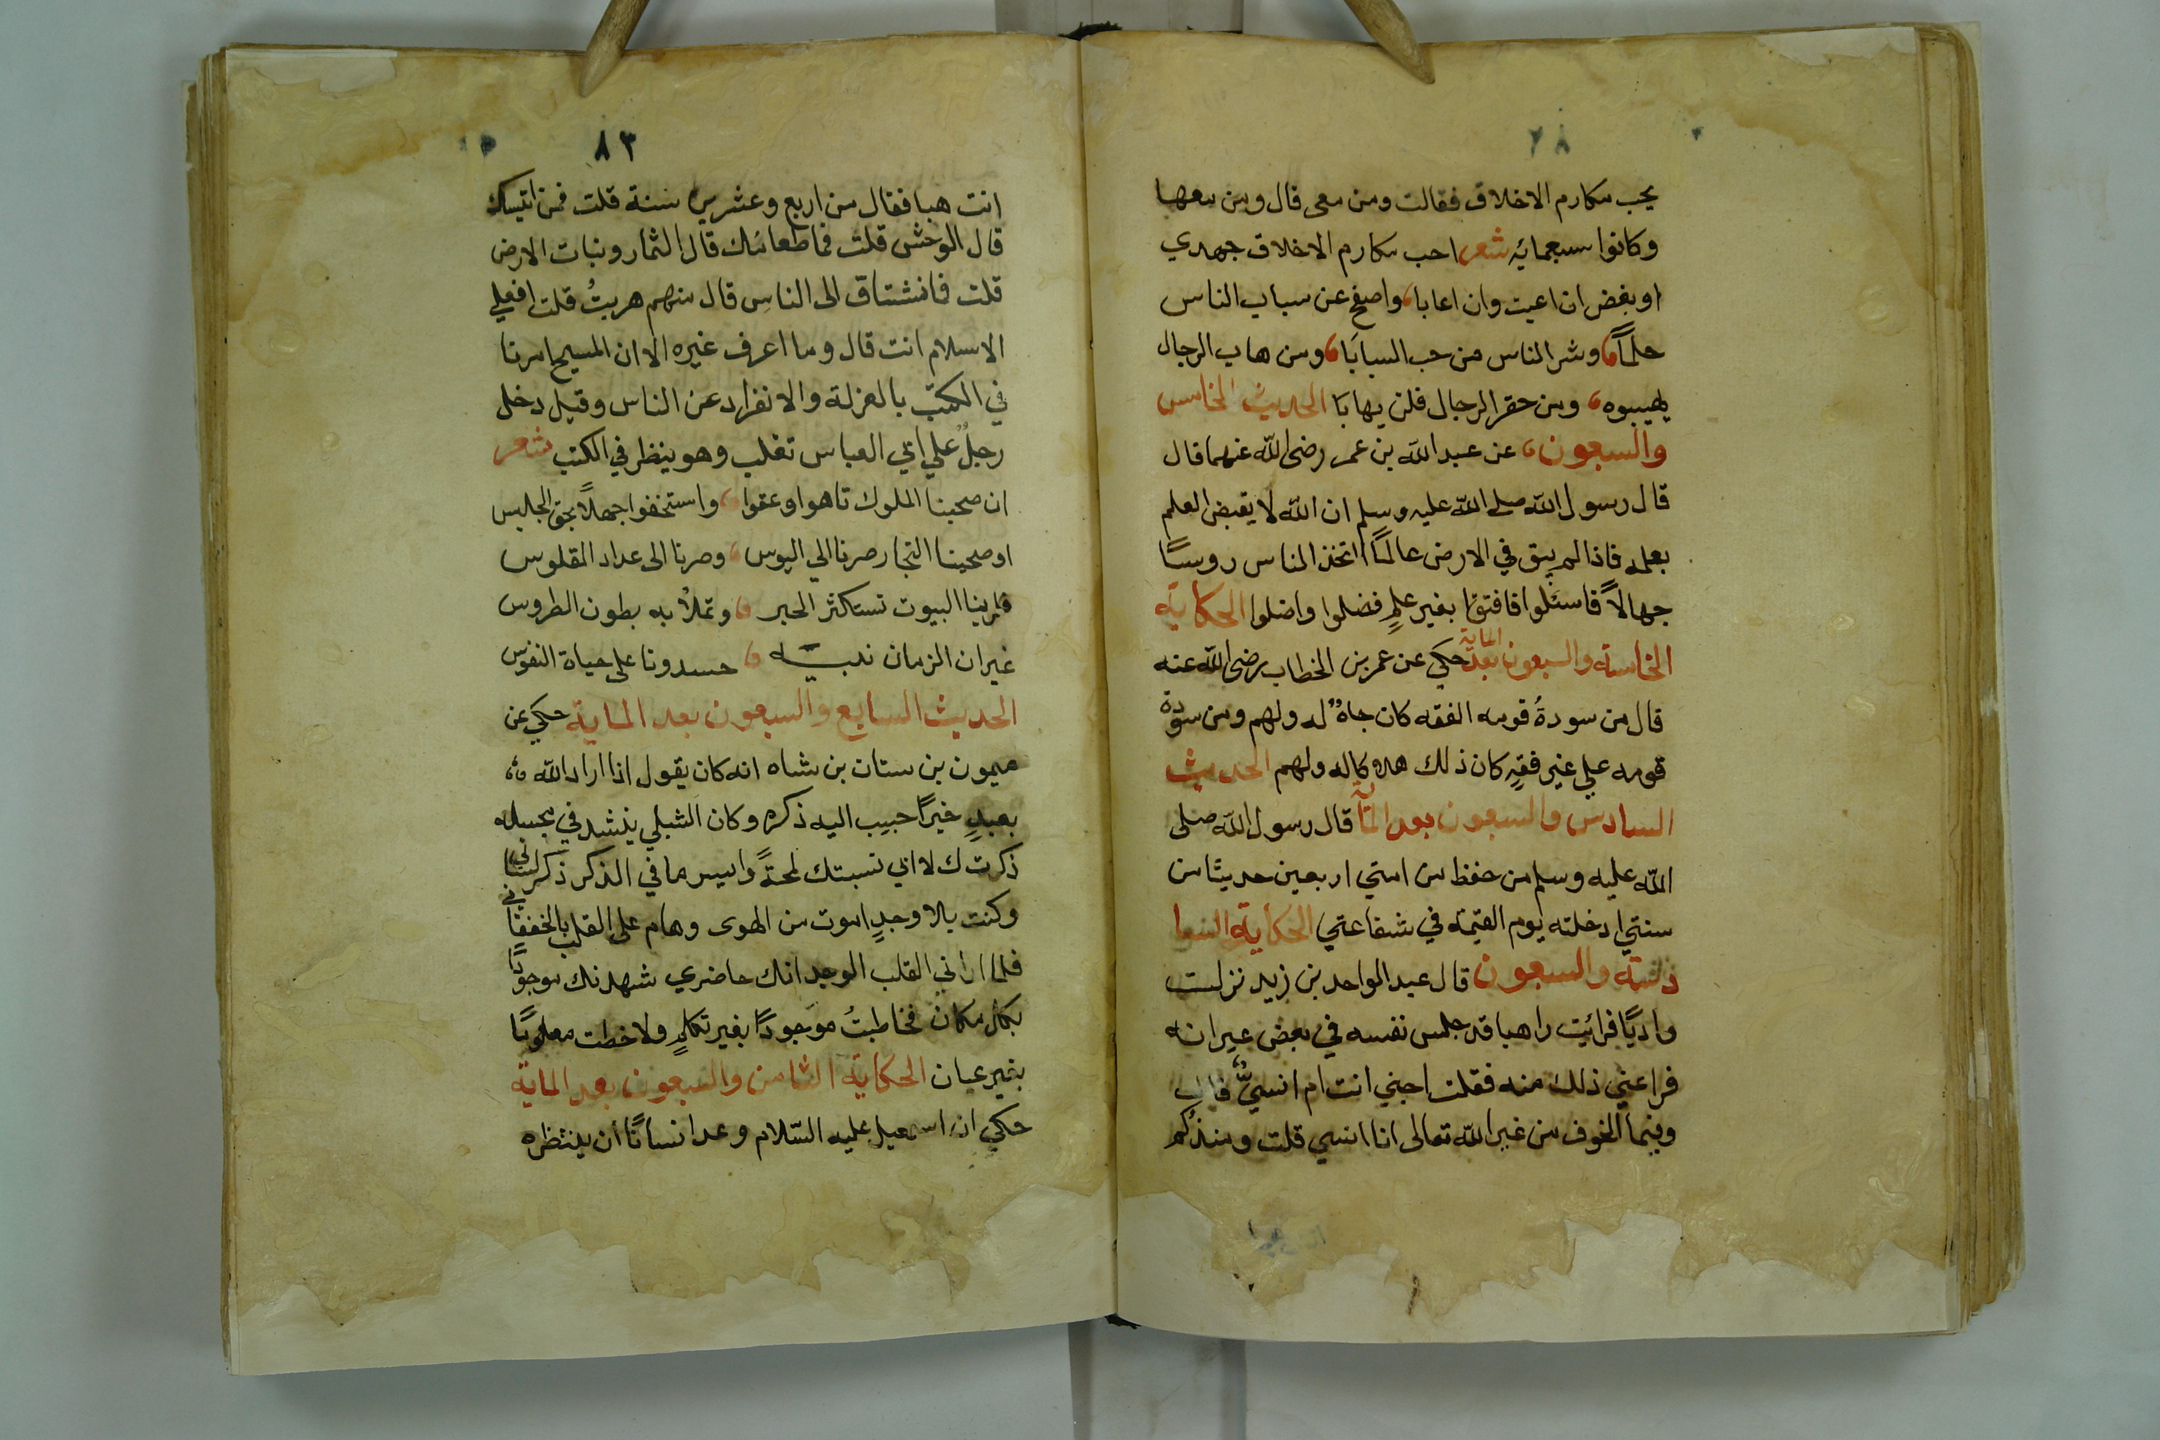 يحب مكارم الاخلاق فقالت ومن معى قال ومن معها
وكانوا سبعمايه شعر احب مكارم الاخلاق جهدي
او بغض ان اعيت وان اعابا واصفح عن سباب الناس
حلمًا وشر الناس من حب السبابَا ومن هاب الرجال
يهيبوه ومن حقر الرجال فلن يهابَا الحديث الخامس
والسبعون عن عبد الله بن عمر رضى الله عنهما قال
قال رسول الله صلى الله عليه وسلم ان الله لا يقبض العلم
بعلمه فاذا لم يبق في الارض عالمًا اتخذ الناس روسًا
جهالاً فاسئلوا فافتوا بغير علمٍ فضلوا واضلوا الحكاية
الخامسة والسبعون بعد الماية حكي عن عمر بن الخطاب رضى الله عنه
قال من سودهُ قومه الفقه كان جاهٌ له ولهم ومن سوده
قومه على غير فقهٍ كان ذلك له ولهم الحديث
السادس والسبعون بعد الماية قال رسول الله صلى
الله عليه وسلم من حفظ من امتي اربعين حديثًا من
سنتي ادخلته يوم القيمة في شفاعتي الحكاية السا
دسة والسبعون قال عبد الواحد بن زيد نزلت
واديًا فرائيت راهبا قد حبس نفسه في بعض غيرانه
فراعني ذلك منه فقلت اجني انت ام انسيٌّ قال
وفيما الخوف من غير الله تعالى انا انسي قلت ومنذكم
٨٣
انت هبا فقال من اربع وعشرين سنة قلت فمن انيسك
قال الوحش قلت فما طعامك قال الثمار ونبات الارض
قلت فما نشتاق الى الناس قال منهم هربتُ قلت افعلي
الاسلام انت قال وما اعرف غيره الا ان المسيح امرنا
في الكتب بالعزلة والانفراد عن الناس وقيل دخل
رجلٌ علي ابي العباس تغلب وهو ينظر في الكتب شعر
ان صحبنا الملوك تاهوا وعقوا واستخفوا جهلاً بحق الجليس
او صحبنا التجار صرنا الي البوس وصرنا الى عداد الفلوس
فلزمنا البيوت نستكثر الحبر ونملأ به بطون الطروس
غير ان الزمان حسدونا على حياة النفوس
الحديث السابع والسبعون بعد الماية حكي عن
ميمون بن ستان بن شاه انه كان يقول اذا اراد الله
بعبدٍ خيرًا حبب اليه ذكره وكان الشبلي ينشد في مجسله
ذكرتك لا اني نسبتك لمحةً وايسر ما في الذكر ذكر لساني
وكنت بلا وجدٍ اموت من الهوى وهام على القلب بالخفقاني
فلما اراني القلب الوجد انك حاضري شهدنك موجودًا
بكل مكان فخاطبتُ موجودًا بغير تكلمٍ ولاحظت معلومًا
بغير عيان الحكاية الثامن والسبعون بعد الماية
حكي ان اسمعيل عليه السّلام وعد انسانًا ان ينتظره